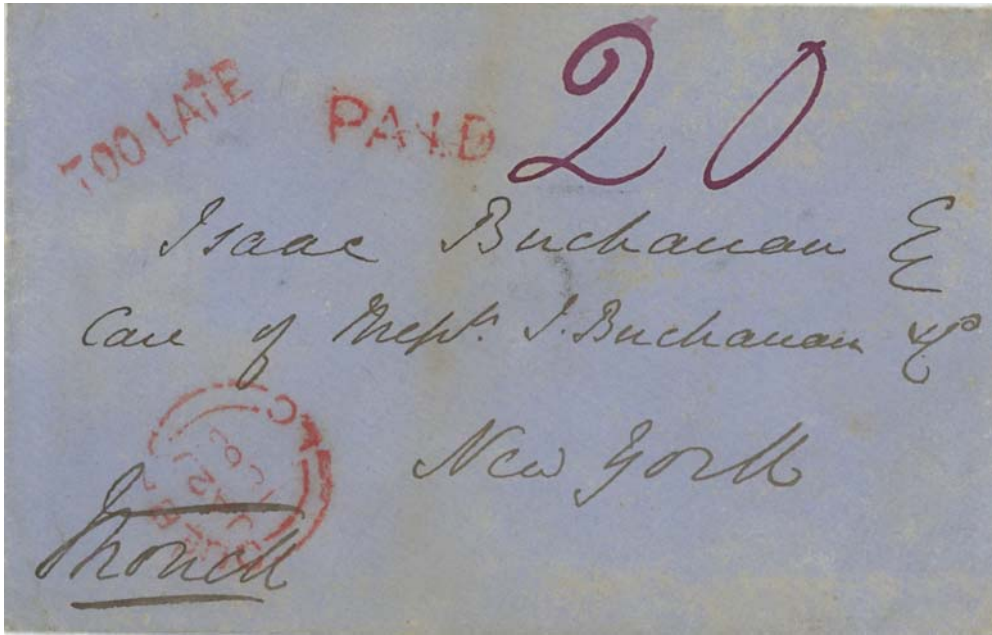 TOO LATE PAID 20
Isaac Buchanan E
Care of Messrs. I. Buchanan & Co
New York
Monck